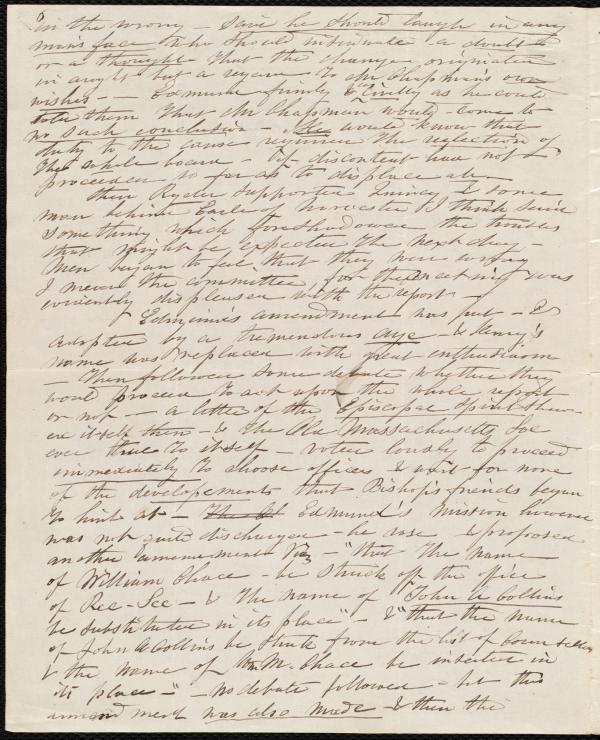 in the wrong - said he should laugh in any
man's face who should intimate a doubt
or a thought that the change originated
in aught but a regard to Mr Chapman's own
wishes - Edmund firmly & civilly as he could
told them that Mr Chapman would come to
no such conclusion - She would know that
duty to the cause required the reelection of
the whole board - if discontent had not
proceeded so far as to displace all -
then Ryder supported Quincy & some
man behind Earle of Worcester I think said
something which foreshadowed the troubles
that might be expected the next day -
Men began to feel that they were wrong
I mean the committee, for the meeting was
evidently displeased with the report -
Edmund's amendment was put - &
adopted by a tremendous aye - & Henry's
name was replaced with great enthusiasm
- Then followed some debate whether they
would proceed to act upon the whole report
or not - a little of the Episcopal spirit shew-
ed itself then - & the Old Massachusetts Soc
ever true to itself - voted loudly to proceed
immediately to choose officers & wait for none
of the developements that Bishop's friends began
to hint at - Edmund's mission however
was not quite discharged - he rose & proposed
another amendment Viz - "that the name
of William Chace be struck off the office
of Rec-Sec - & the name of John A Collins
be substituted in its place" - & "that the name
of John A Collins be struck from the list of Counsellors
& the name of Wm M. Chace be inserted in
its place -" - no debate followed - but this
amendment was also made & then the